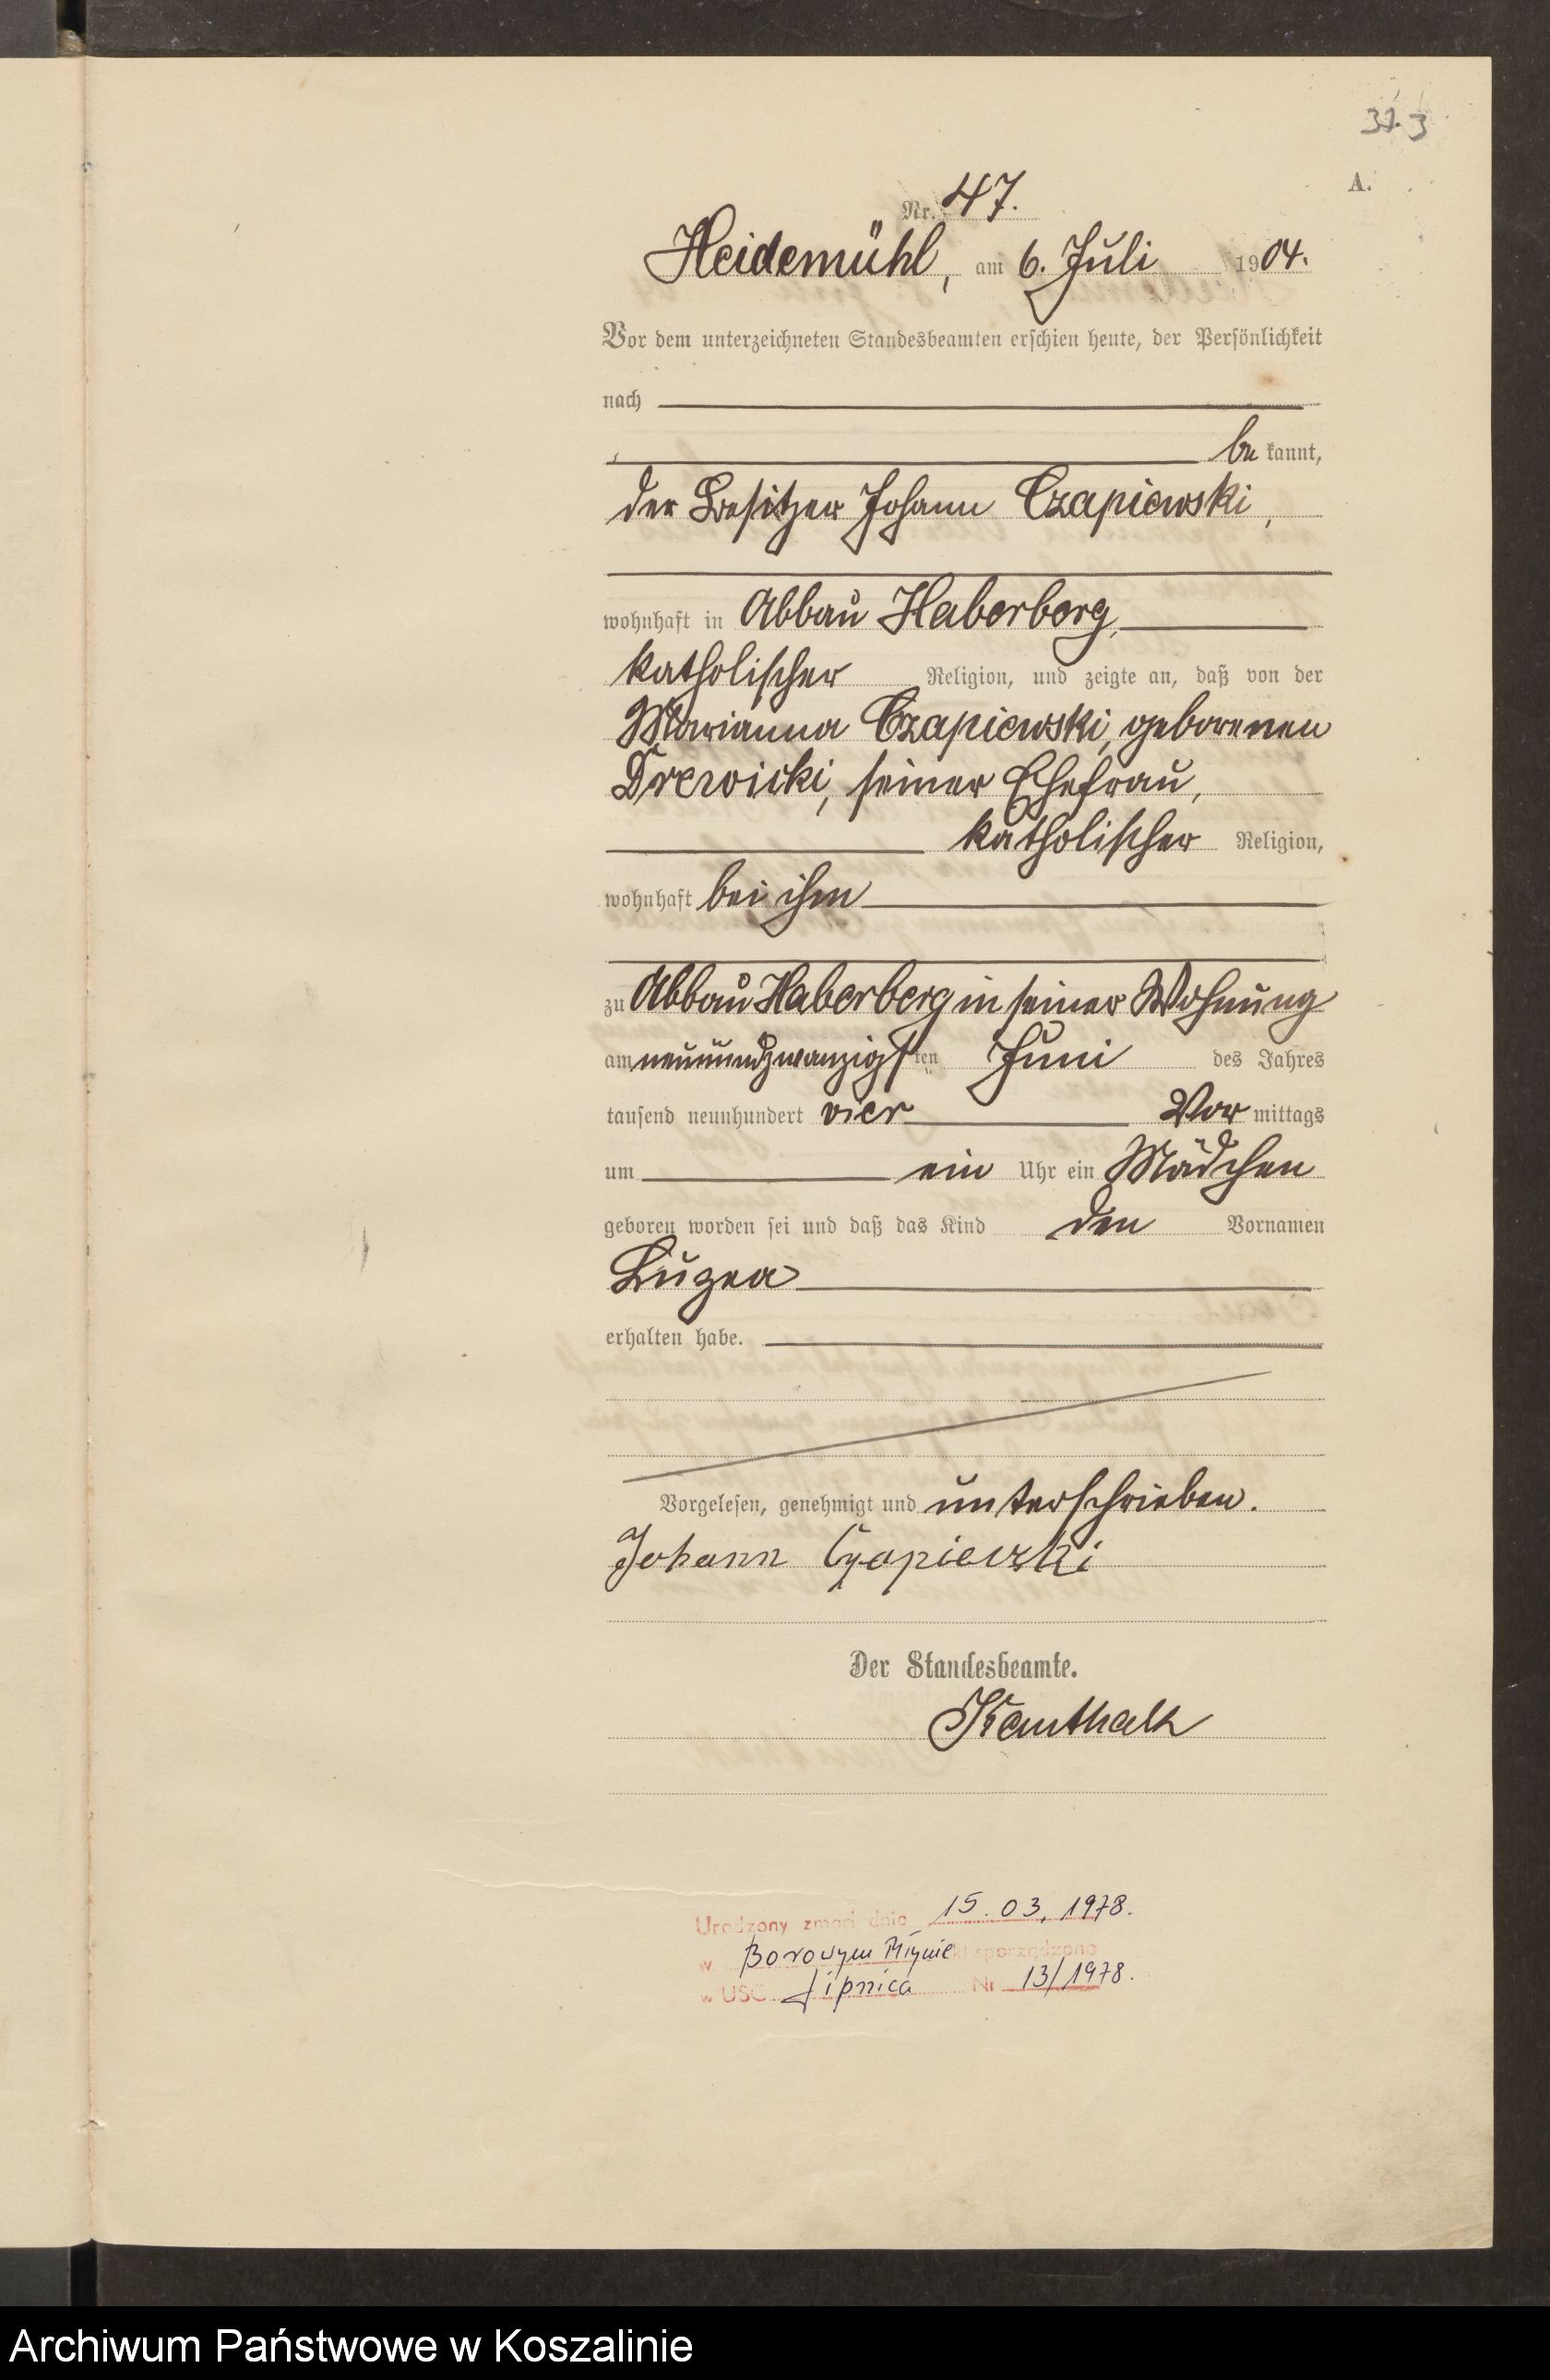 37. 3
A.
Nr. 47.
Heidemühl, am 6. Juli 1904.
Vor dem unterzeichneten Standesbeamten erschien heute, der Persönlichkeit
nach
be kannt,
der Besitzer Johann Czapiewski,
wohnhaft in Abbau Haberberg,
katholischer Religion, und zeigte an, daß von der
Marianna Czapiewski, geborenen
Drewicki, seiner Ehefrau,
katholischer Religion,
wohnhaft bei ihm
zu Abbau Haberberg in seiner Wohnung
am neunundzwanzigsten Juni des Jahres
tausend neunhundert vier Vor mittags
um ein Uhr ein Mädchen
geboren worden sei und daß das Kind den Vornamen
Luzea
erhalten habe.
Vorgelesen, genehmigt und unterschrieben.
Johann Czapiewski
Der Standesbeamte.
Kauthack
Urodzony zmarł dnia 15.03.1978.
w Borowym Młynie sporządzono
w USC Lipnica Nr 13/1978.
Archiwum Państwowe w Koszalinie